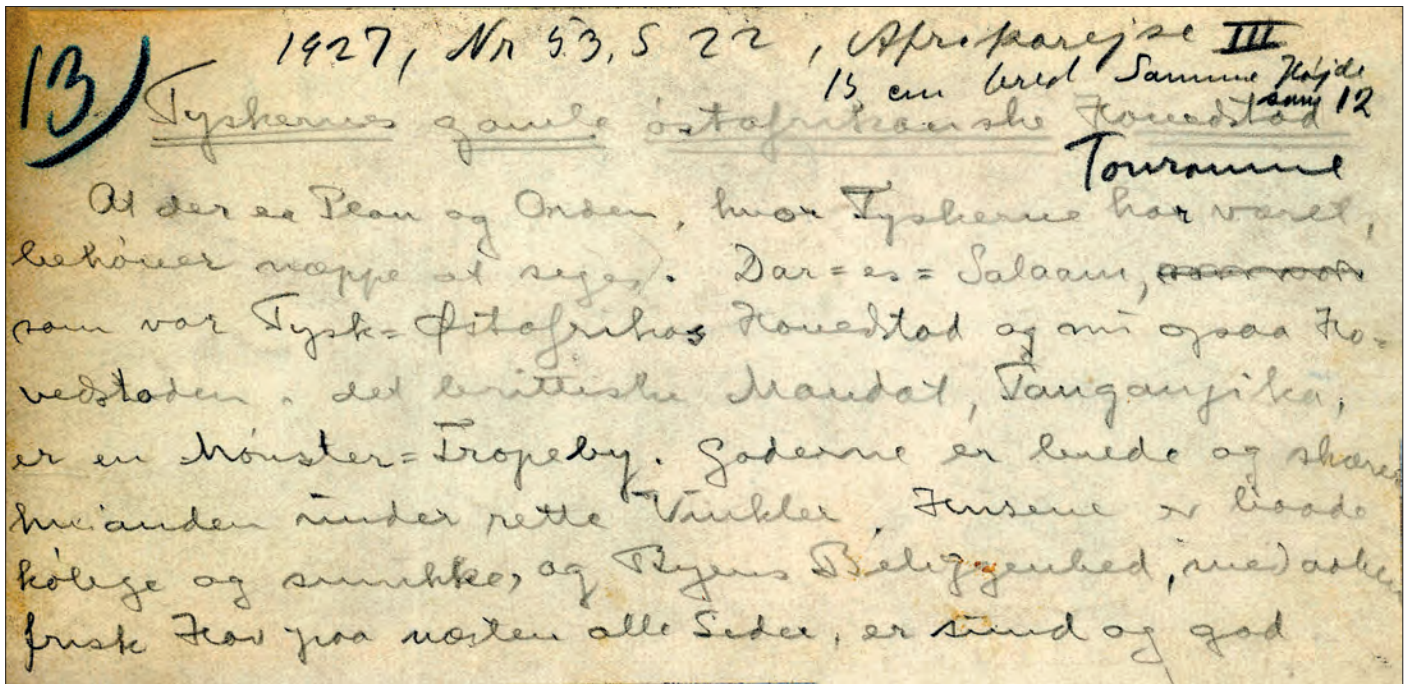 13) 1927, Nr 53, S 22, Afrikarejse III
15 cm bred Samme Højde
som 12
Tyskernes gamle østafrikanske Hovedstad
At der er Plan og Orden, hvor Tyskerne har været,
behøver næppe at siges. Dar=es=Salaam,
som var Tysk=Østafrikas Hovedstad og nu ogsaa Ho=
vedstaden i det brittiske Mandat, Tanganjika,
er en Mønster=Tropeby. Gaderne er brede og skærer
hinanden under rette Vinkler. Husene er baade
kølige og smukke, og Byens Beliggenhed, med
frisk Hav paa næsten alle Sider, er sund og god